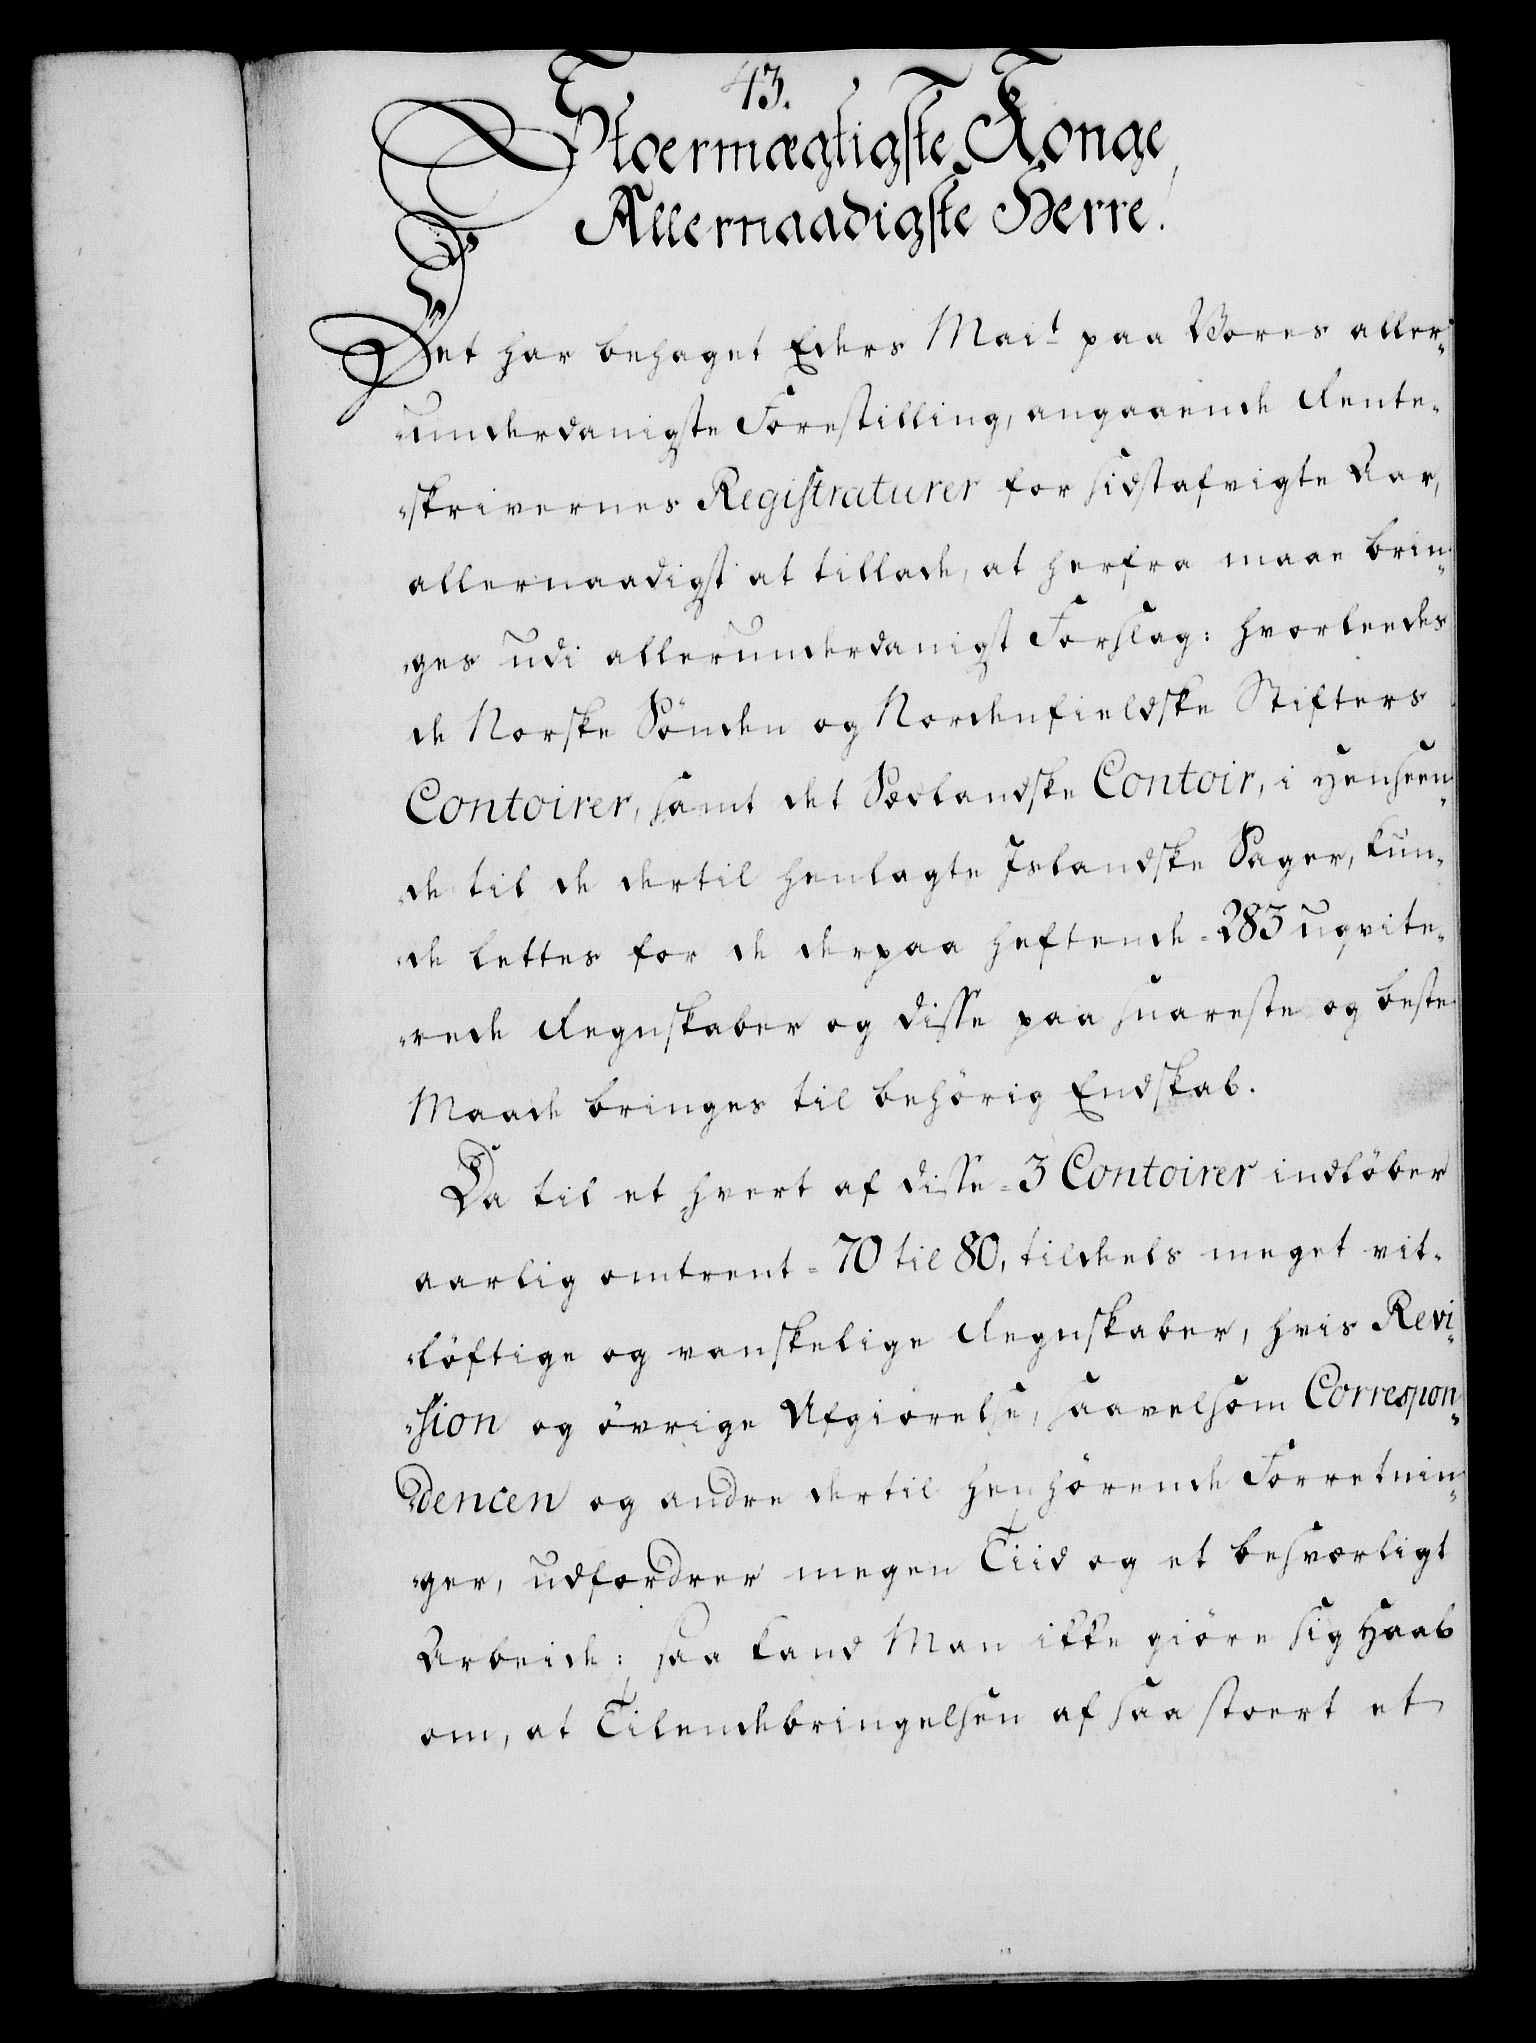 43.
Stoermægtigste Konge,
Allernaadigste Herre!
Det har behaget Eders Mait paa Vores aller-
-underdanigste Forestilling, angaaende Rente-
-skrivernes Registraturer for sidstafvigte Aar,
allernaadigst at tillade, at herfra maae brin-
-ges udi allerunderdanigst Forslag: hvorleedes
de Norske Sönden og Nordenfieldske Stifters
Contoirer, samt det Sædlandske Contoir, i Henseen-
-de til de dertil henlagte Islandske Sager, kun-
-de lettes for de derpaa heftende 283 uqvite-
-rede Regnskaber og disse paa snareste og beste
Maade bringes til behörig Endskab.
Da til et hvert af disse 3 Contoirer indlöber
aarlig omtrent 70 til 80, tildeels meget vit-
-löftige og vanskelige Regnskaber, hvis Revi-
-sion og övrige Afgiörelse, saavelsom Correspon-
-dencen og andre dertil henhörende Forretnin-
-ger, udfordrer megen Tiid og et besværligt
Arbeide: saa kand Man ikke giöre sig Haab
om, at Tilendebringelsen af saa stoert et